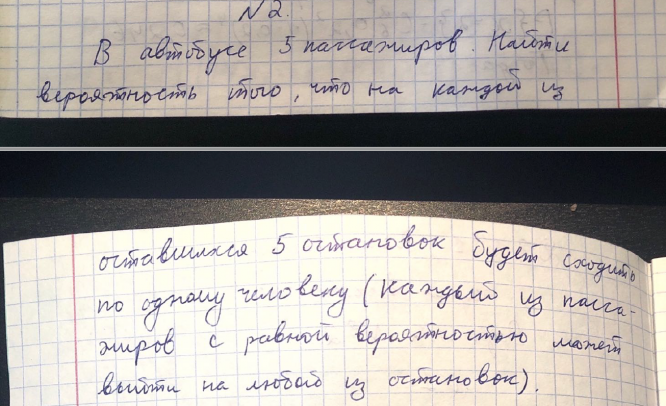 N2.
В автобусе 5 пассажиров. Найти
вероятность того, что на каждой из
оставшихся 5 остановок будет сходить
по одному человеку (каждый из пасса-
жиров с равной вероятностью может
выйти на любой из остановок).